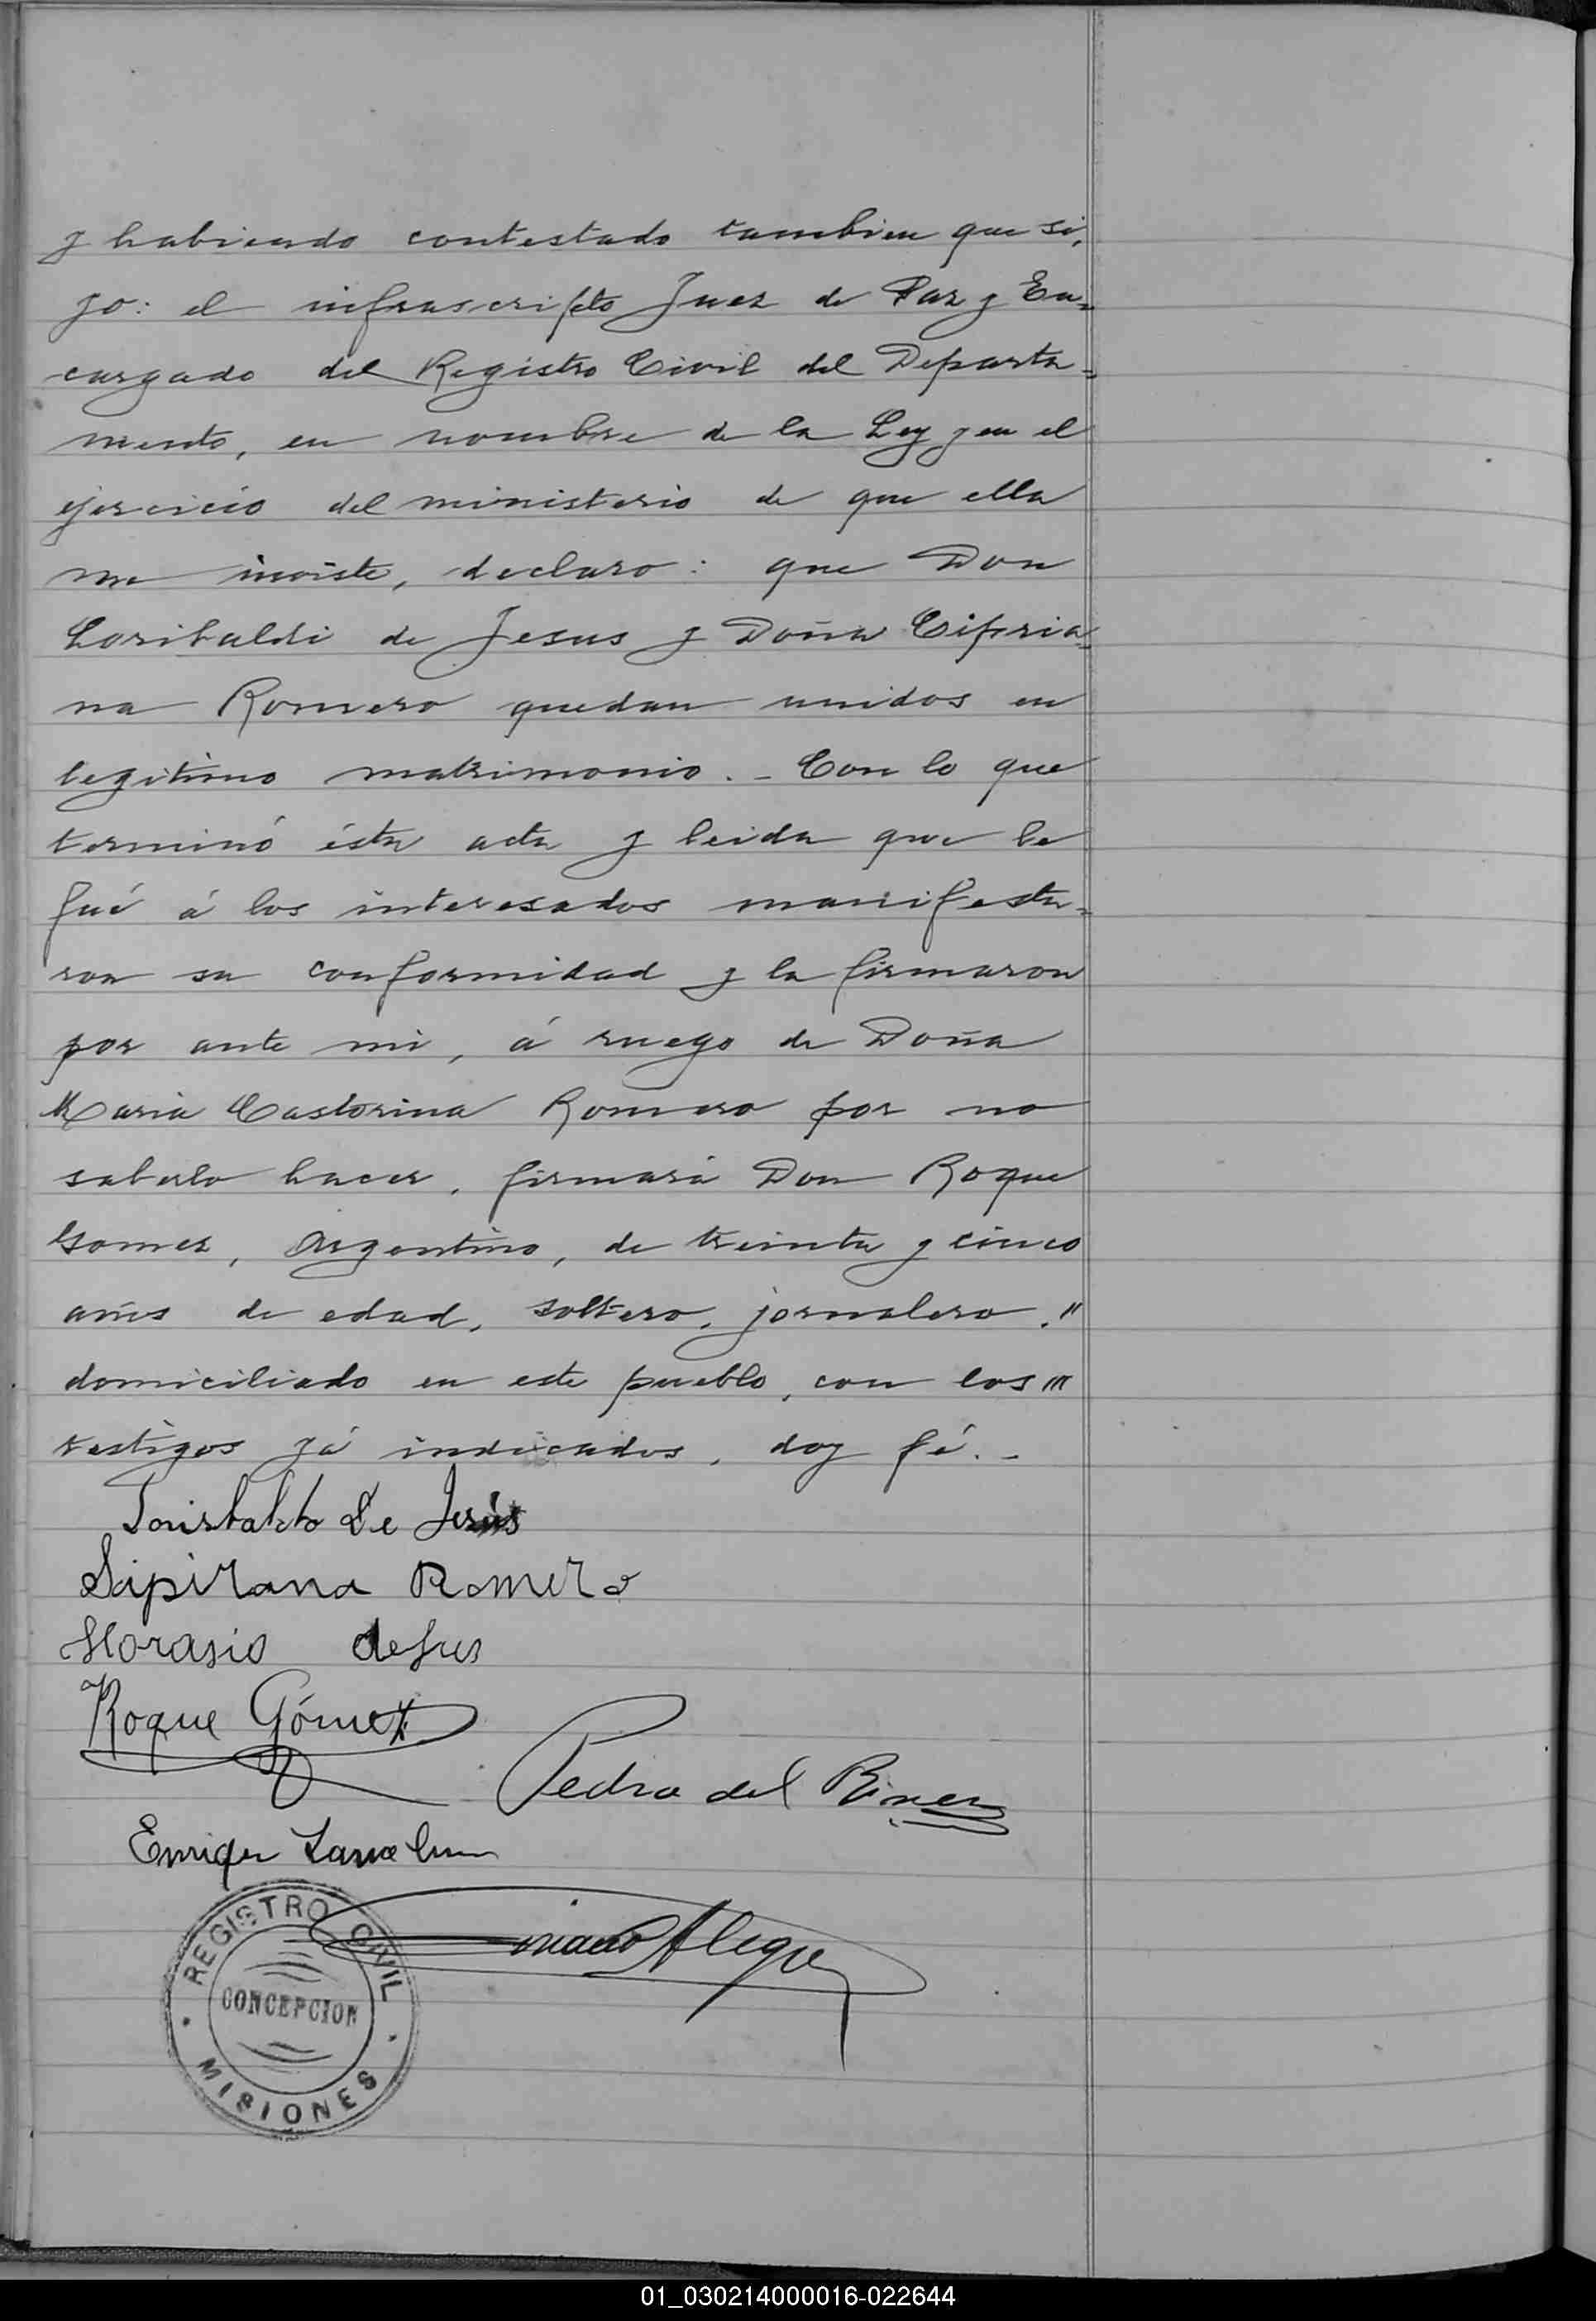 y habiendo contestado tambien que si,
yo: el infrascripto Juez de Paz y En=
cargado del Registro Civil del Departa=
mento, en nombre de la Ley y en el
ejercicio del ministerio de que ella
me inviste, declaro: que Don
Loribaldi de Jesus y Doña Cipria=
na Romero quedan unidos en
legitimo matrimonio.- Con lo que
terminó ésta acta y leida que le
fué á los interesados manifesta=
ron su conformidad y la firmaron
por ante mi, á ruego de Doña
Maria Castorina Romero por no
saberlo hacer, firmará Don Roque
Gomez, Argentino, de treinta y cinco
años de edad, soltero, jornalero,"
domiciliado en este pueblo, con los "'
testigos yá indicados, doy fé.-
de Jesús
Sipirana Romero
Horasio deJus
Roque Gómez
Pedro del
Enrique
Alegre
REGISTRO CIVIL
CONCEPCION
MISIONES
01_030214000016-022644